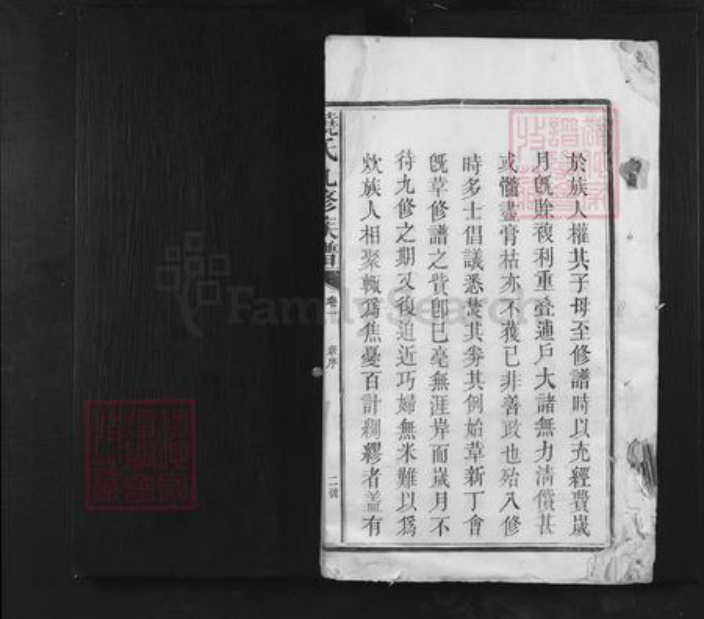 於族人權其子母至修譜時以充經費歲
月旣賒複利重叠逋戶大諸無力清償甚
或髓盡膏枯亦不獲已非善政也殆入修
時多士倡議悉焚其劵其例始革新丁會
旣革修譜之費卽已毫無涯岸而歲月不
待九修之期又復迫近巧婦無米難以爲
炊族人相聚輙爲焦憂百計綢繆者蓋有
氏九修族譜
卷一
序
二號
FamilySearch